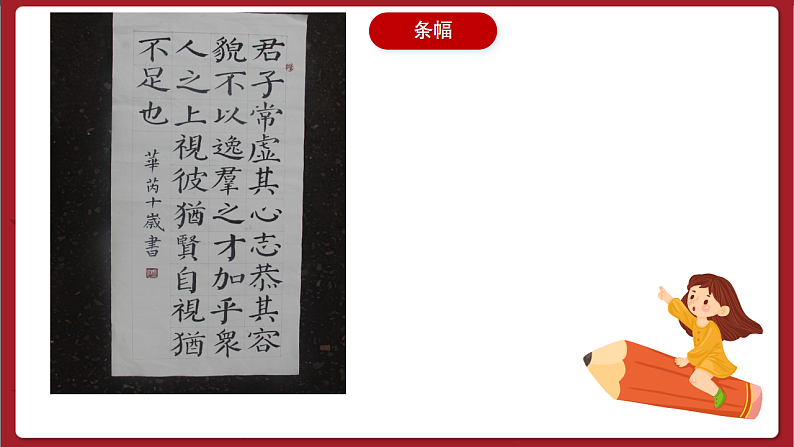 条幅
君子常虚其心志恭其容
貌不以逸羣之才加乎衆
人之上視彼猶賢自視猶
不足也
華芮十嵗書